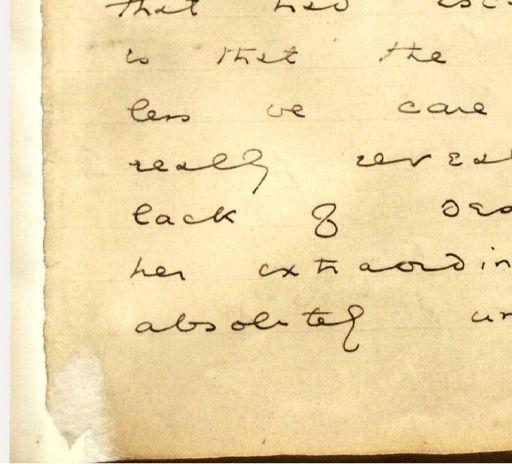 that had esc
is that the
less we care
really reveal
lack of
her extraordin
absolutely un